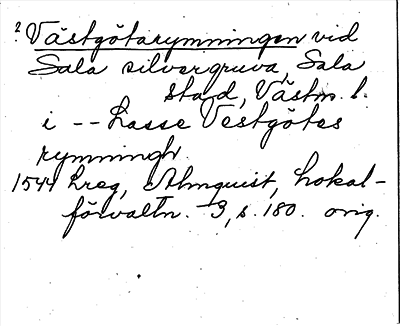 2 Västgötarymningen vid
Sala silvergruva, Sala
stad, Västm. l.
i -- Lasse Vestgötes
rymningh.
1544 Lreg, Almquist, Lokal-
förvaltn. 3, s. 180. orig.